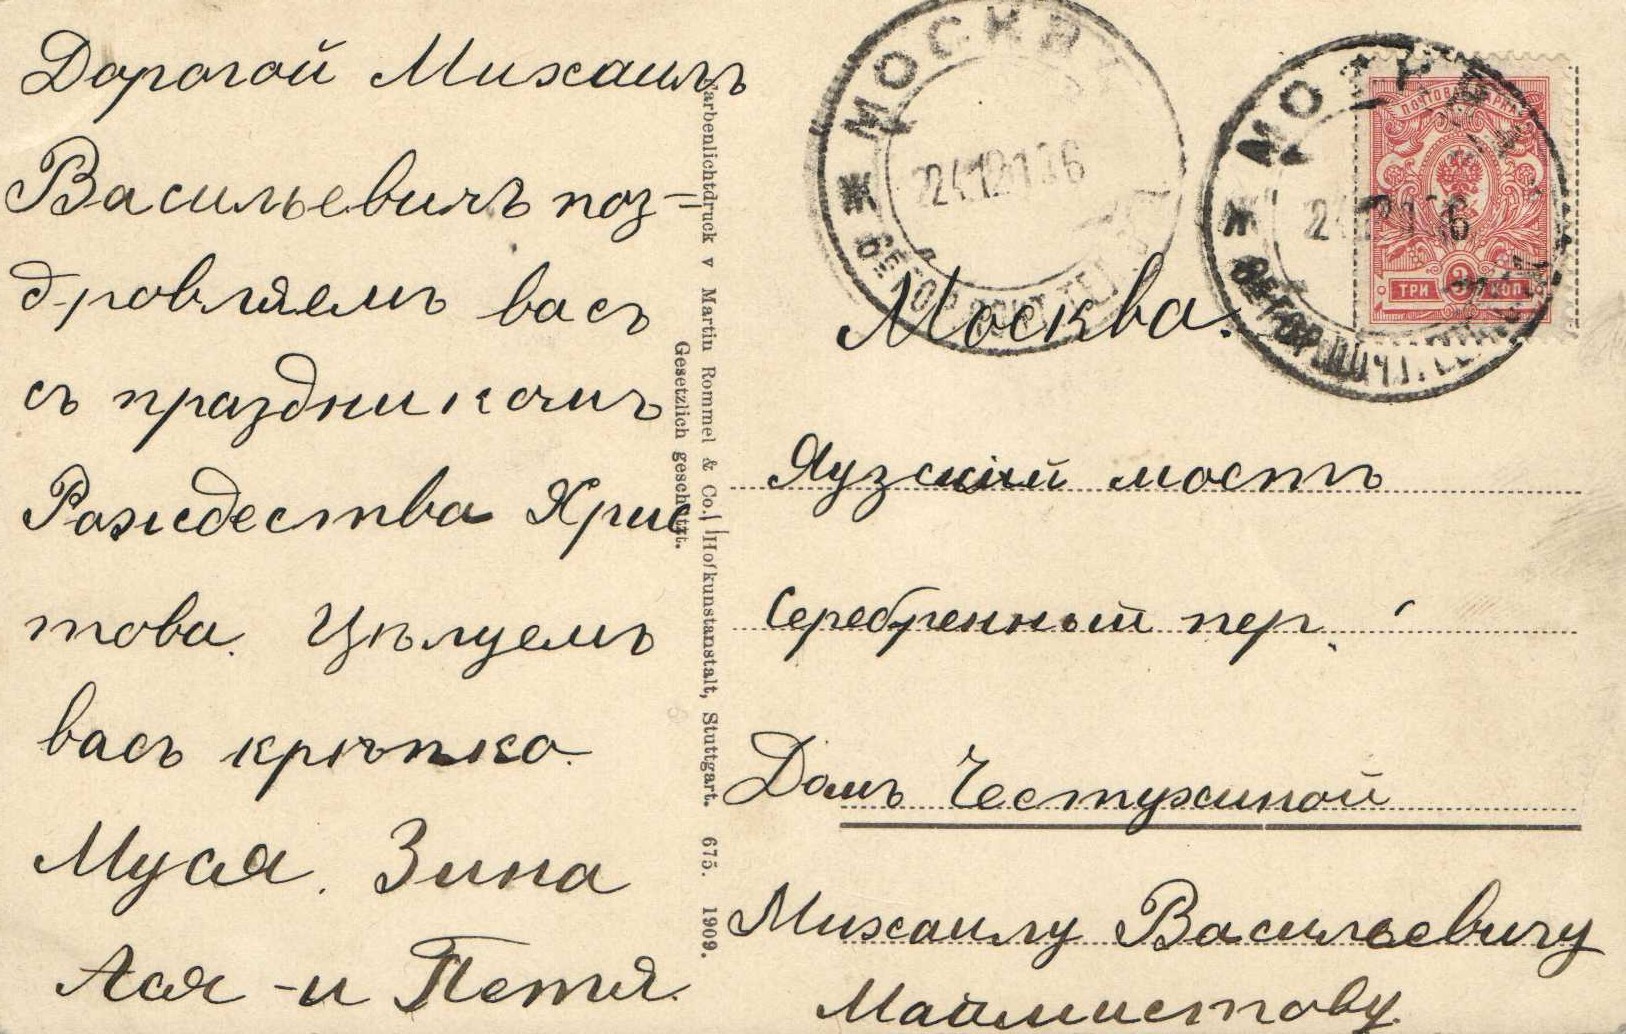 Дорогой Михаилъ
Васильевичъ поз=
дровляемъ васъ
съ праздникомъ
Рождества Хрис
това. Цѣлуемъ
васъ крѣпко.
Муся. Зина
Ася - и Петя.
Farbenlichtdruck v Martin Rommel & Co., Hofkunstanstalt, Stuttgart. 675. 1909.
Gesetzlich geschützt.
МОСКВА
24.12.
МОСКВА
ПОЧТОВАЯ МАРКА
3
ТРИ КОП
Москва.
Яузскій мостъ
Серебренный пер.
Домъ Честухиной
Михаилу Васильевичу
Маймистову.